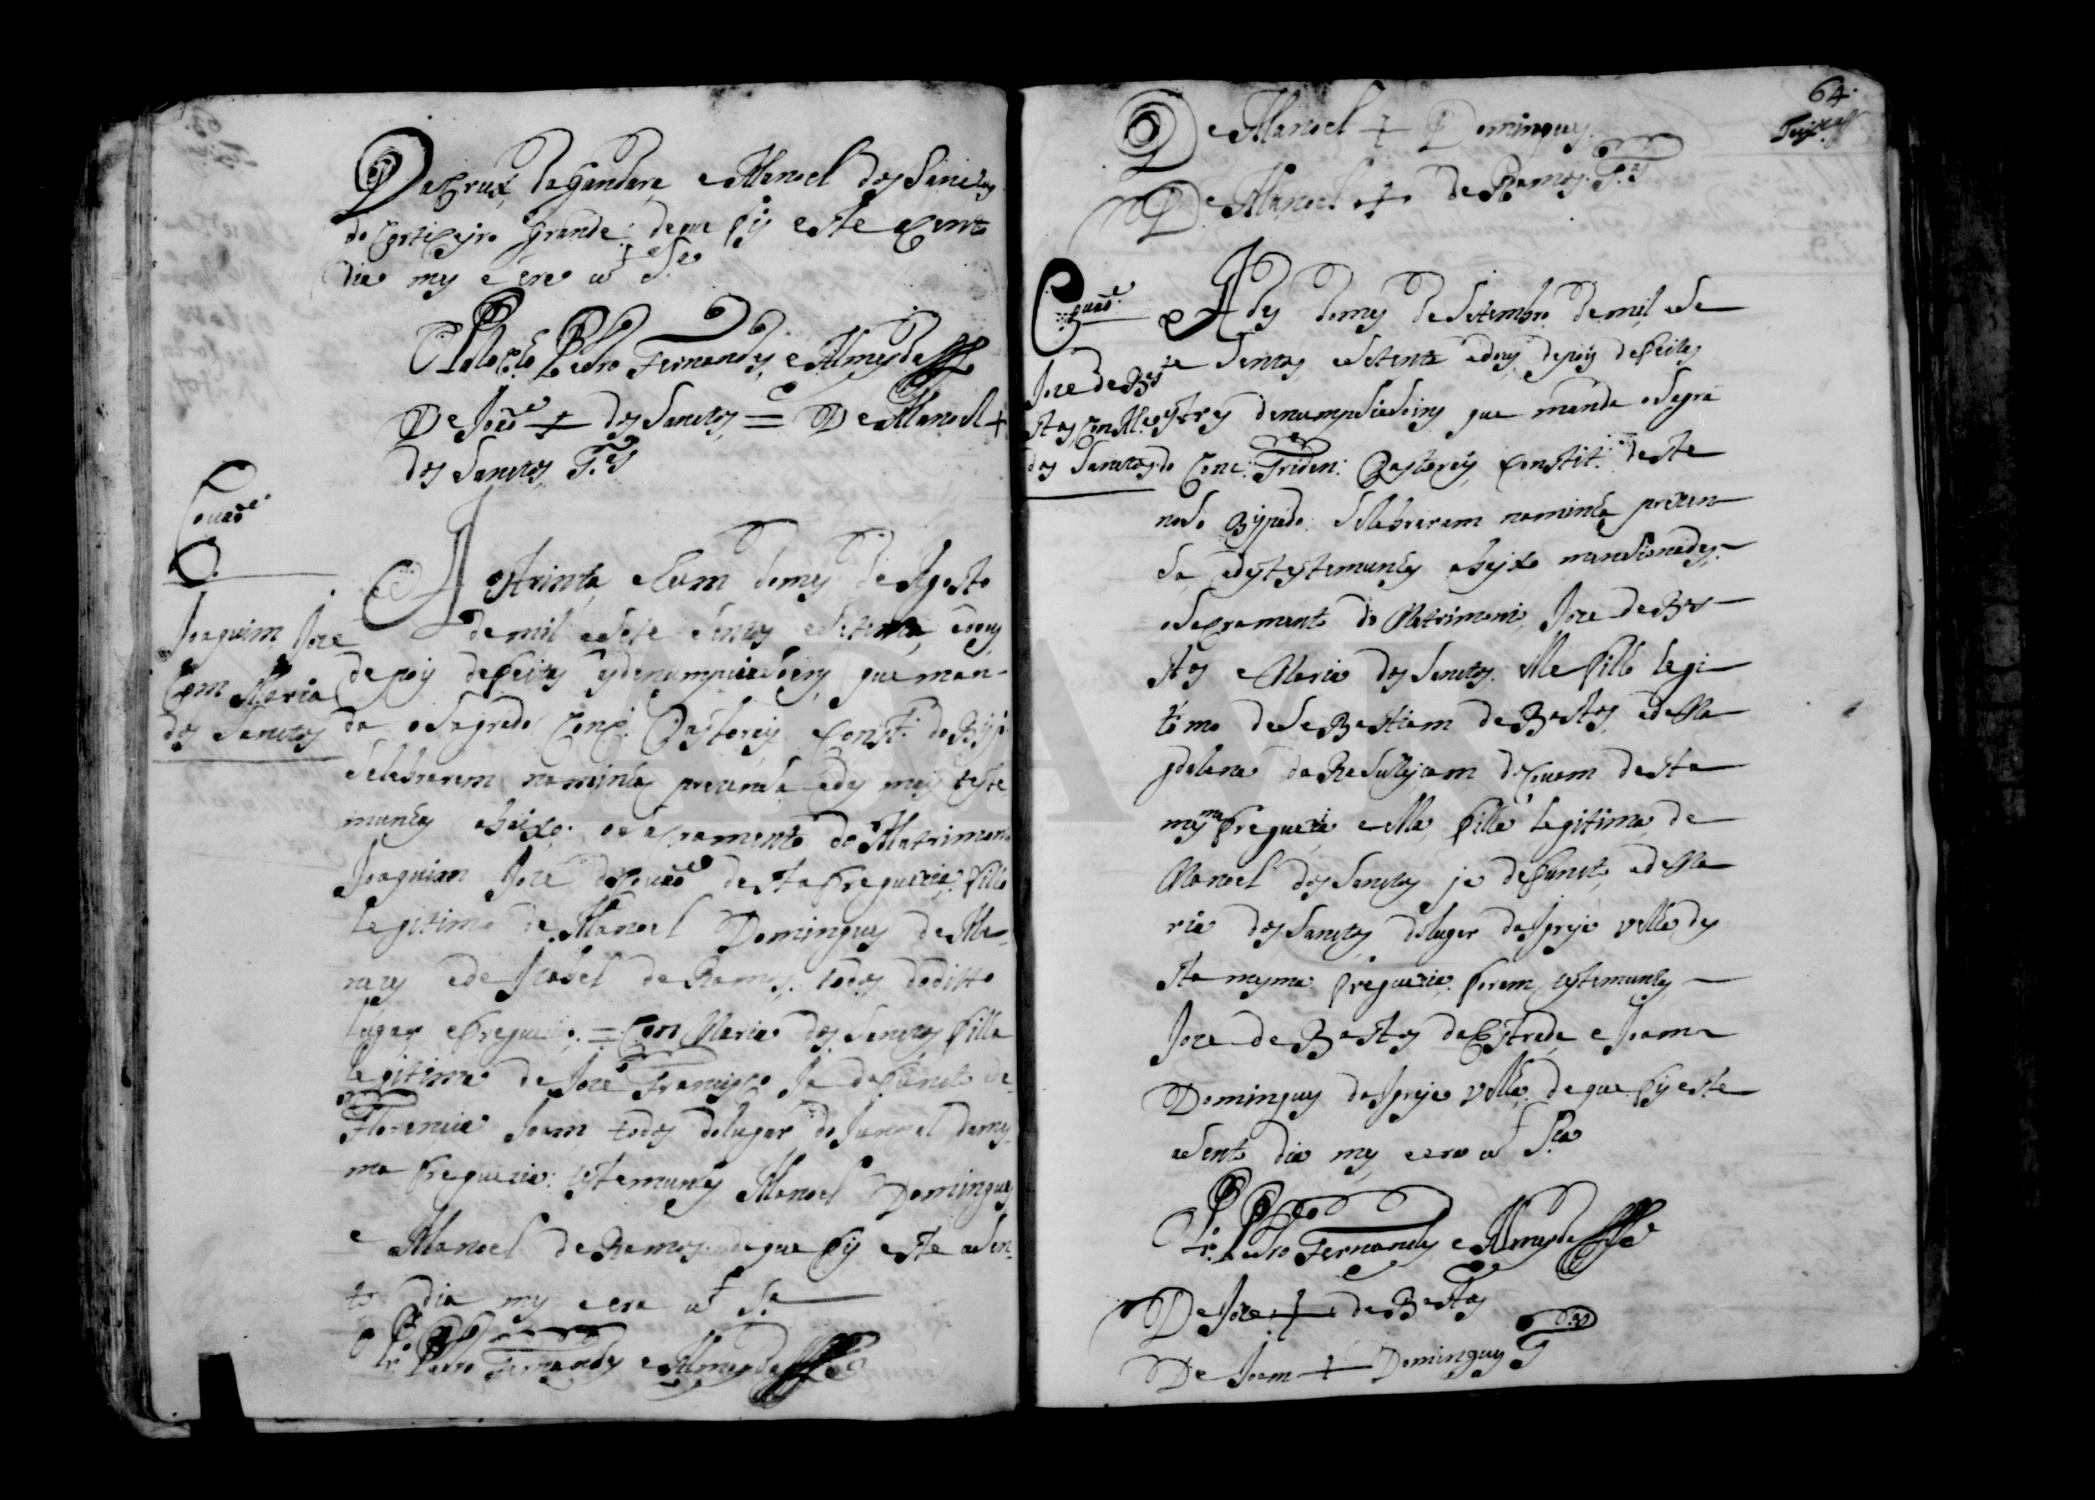 Da Crux, da Gandara, e Manoel dos Sanctos
do Corticeiro grande: de que fis este acento
dia mes e era ut S.a
O P.e Pedro Fernandes e Almeyda
De Joze + dos Sanctos = De Manoel +
dos Sanctos T.as
Couão
Joaquim Joze
Com Maria
dos Sanctos
A os trinta e hum do mes de Agosto
de mil e sete sentos e setenta e dous
depois de feitas as denumpuiasoins que man-
da o Sagrado Conc. Pastorais Const. do Bisp.
selebrarem na minha prezensa e das mais teste
munhas abaixo: o sacramento do Matrimonio
Joaquim Joze do Couão desta freguezia, filho
Legitimo de Manoel Domingues de Ma-
e de Izabel de Ramos, todos do ditto
lugar e freguezia = Con Maria dos Sanctos filha
legitima de Joze Francisco Ja defuncto e
Florencia Joam todos do lugar do da mes
ma freguezia: testemunhas Manoel Domingues
e Manoel de Ramos de que fis este asen
to dia mes e era ut S.a
O P.e Pedro Fernandes e Almeyda
64.
De Manoel + Domingues
De Manoel + de Ramos T.as
Couão
Joze de Bas
tos Con M.a
dos Sanctos
Aos do mes de Setembro de mil e se
te sentos e setenta e dous, depois de feitas
as tres denumpsiasoins que manda o Sagra
do Conc: Triden: Pastorais, Constit: deste
noso Bispado: selebraram na minha prezen
sa, e das testemunhas abaixo mensionadas
o sacramento do Matrimonio, Joze de Bas
tos e Maria dos Sanctos. Elle filho legi
timo de Sebastiam de Bastos e de Ma
gdalena da Resurejsam, do Couam desta
mesma freguezia, e ella filha legitima de
Manoel dos Sanctos ja defuncto, e de Ma
ria dos Sanctos, do lugar da Igreja velha de
sta mesma freguezia. foram testemunhas
Joze de Bastos da Estrada, e Joam
Domingues da Igreja velha, de que fis este
asento dia mes e era ut S.a
O P.e Pedro Fernandes e Almeyda
De Joze + de Bastos
De Joam + Domingues T.as